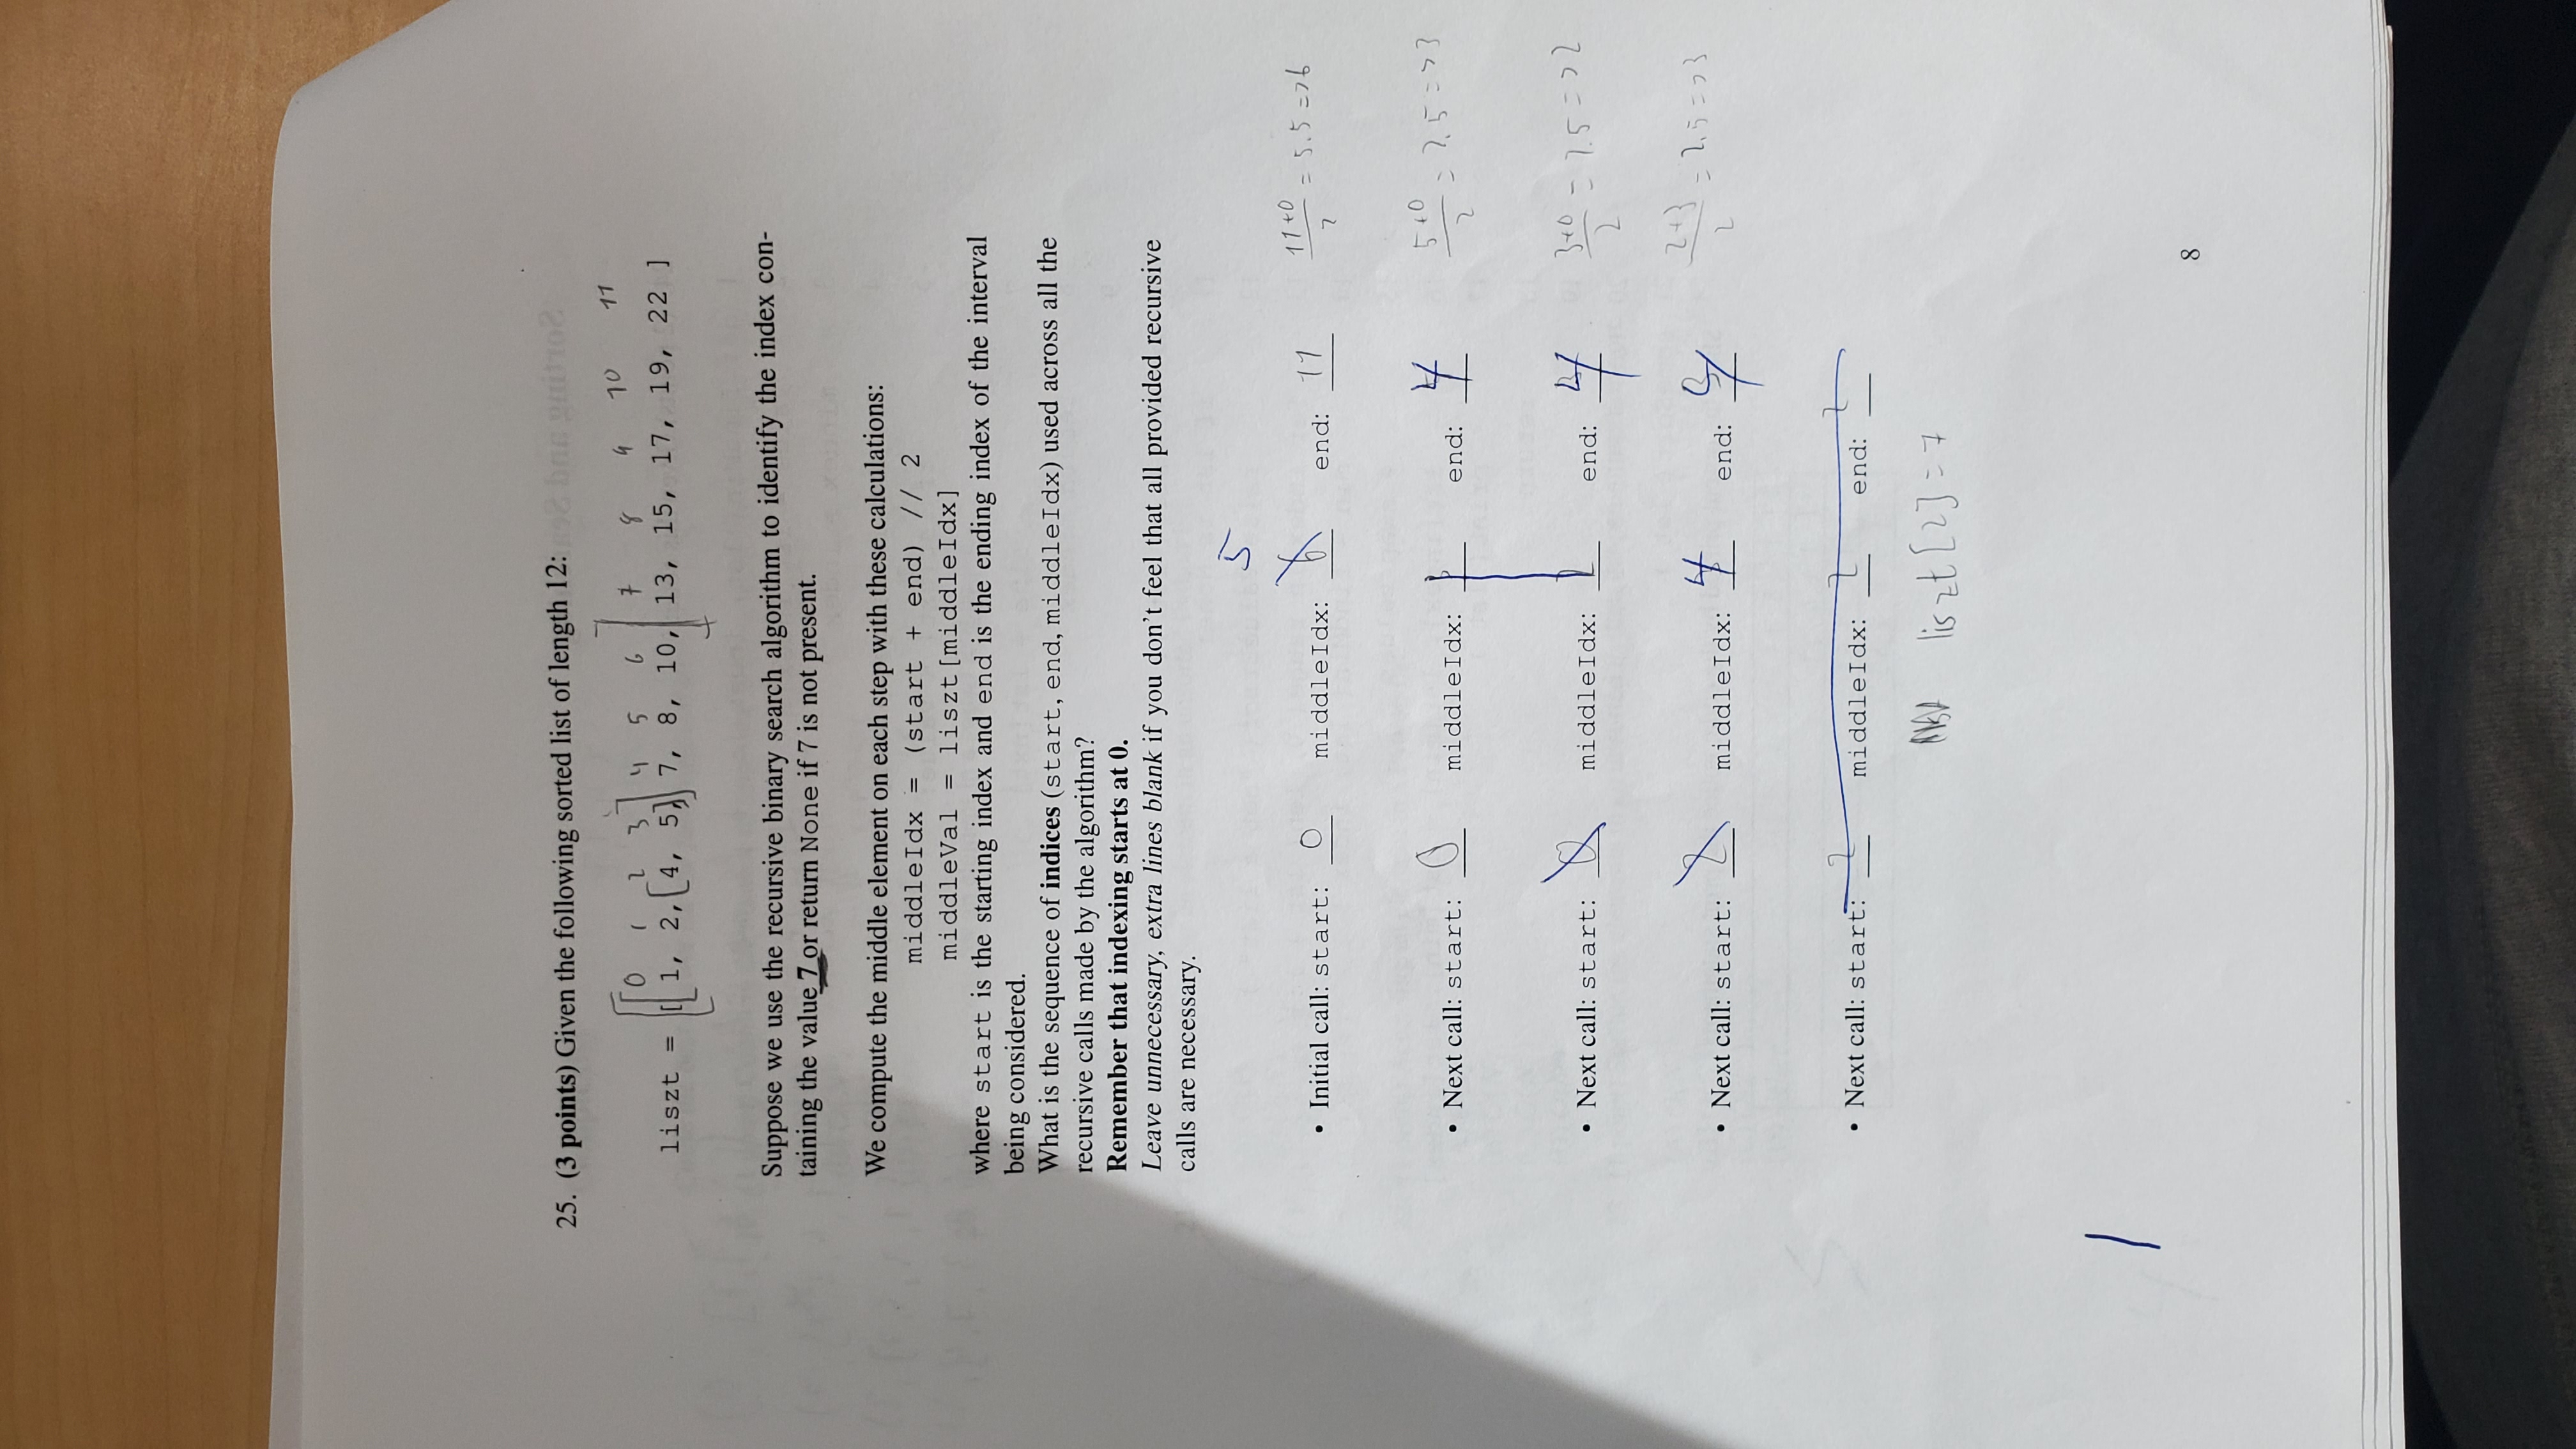 25. (3 points) Given the following sorted list of length 12:
0 1 2 3 4 5 6 7 8 9 10 11
liszt = [ 1, 2, 4, 5, 7, 8, 10, 13, 15, 17, 19, 22 ]
Suppose we use the recursive binary search algorithm to identify the index con-
taining the value 7 or return None if 7 is not present.
We compute the middle element on each step with these calculations:
middleIdx = (start + end) // 2
middleVal = liszt[middleIdx]
where start is the starting index and end is the ending index of the interval
being considered.
What is the sequence of indices (start, end, middleIdx) used across all the
recursive calls made by the algorithm?
Remember that indexing starts at 0.
Leave unnecessary, extra lines blank if you don't feel that all provided recursive
calls are necessary.
5
• Initial call: start: 0 middleIdx: 6 end: 11 11+0/2 = 5.5 => 6
• Next call: start: 0 middleIdx: end: 4 5+0/2 = 2.5 => 3
• Next call: start: 0 middleIdx: end: 3+0/2 = 1.5 => 2
• Next call: start: 2 middleIdx: 4 end: 3 2+3/2 = 2.5 => 3
• Next call: start: 2 middleIdx: 2 end: 2
liszt[2] = 7
1
8